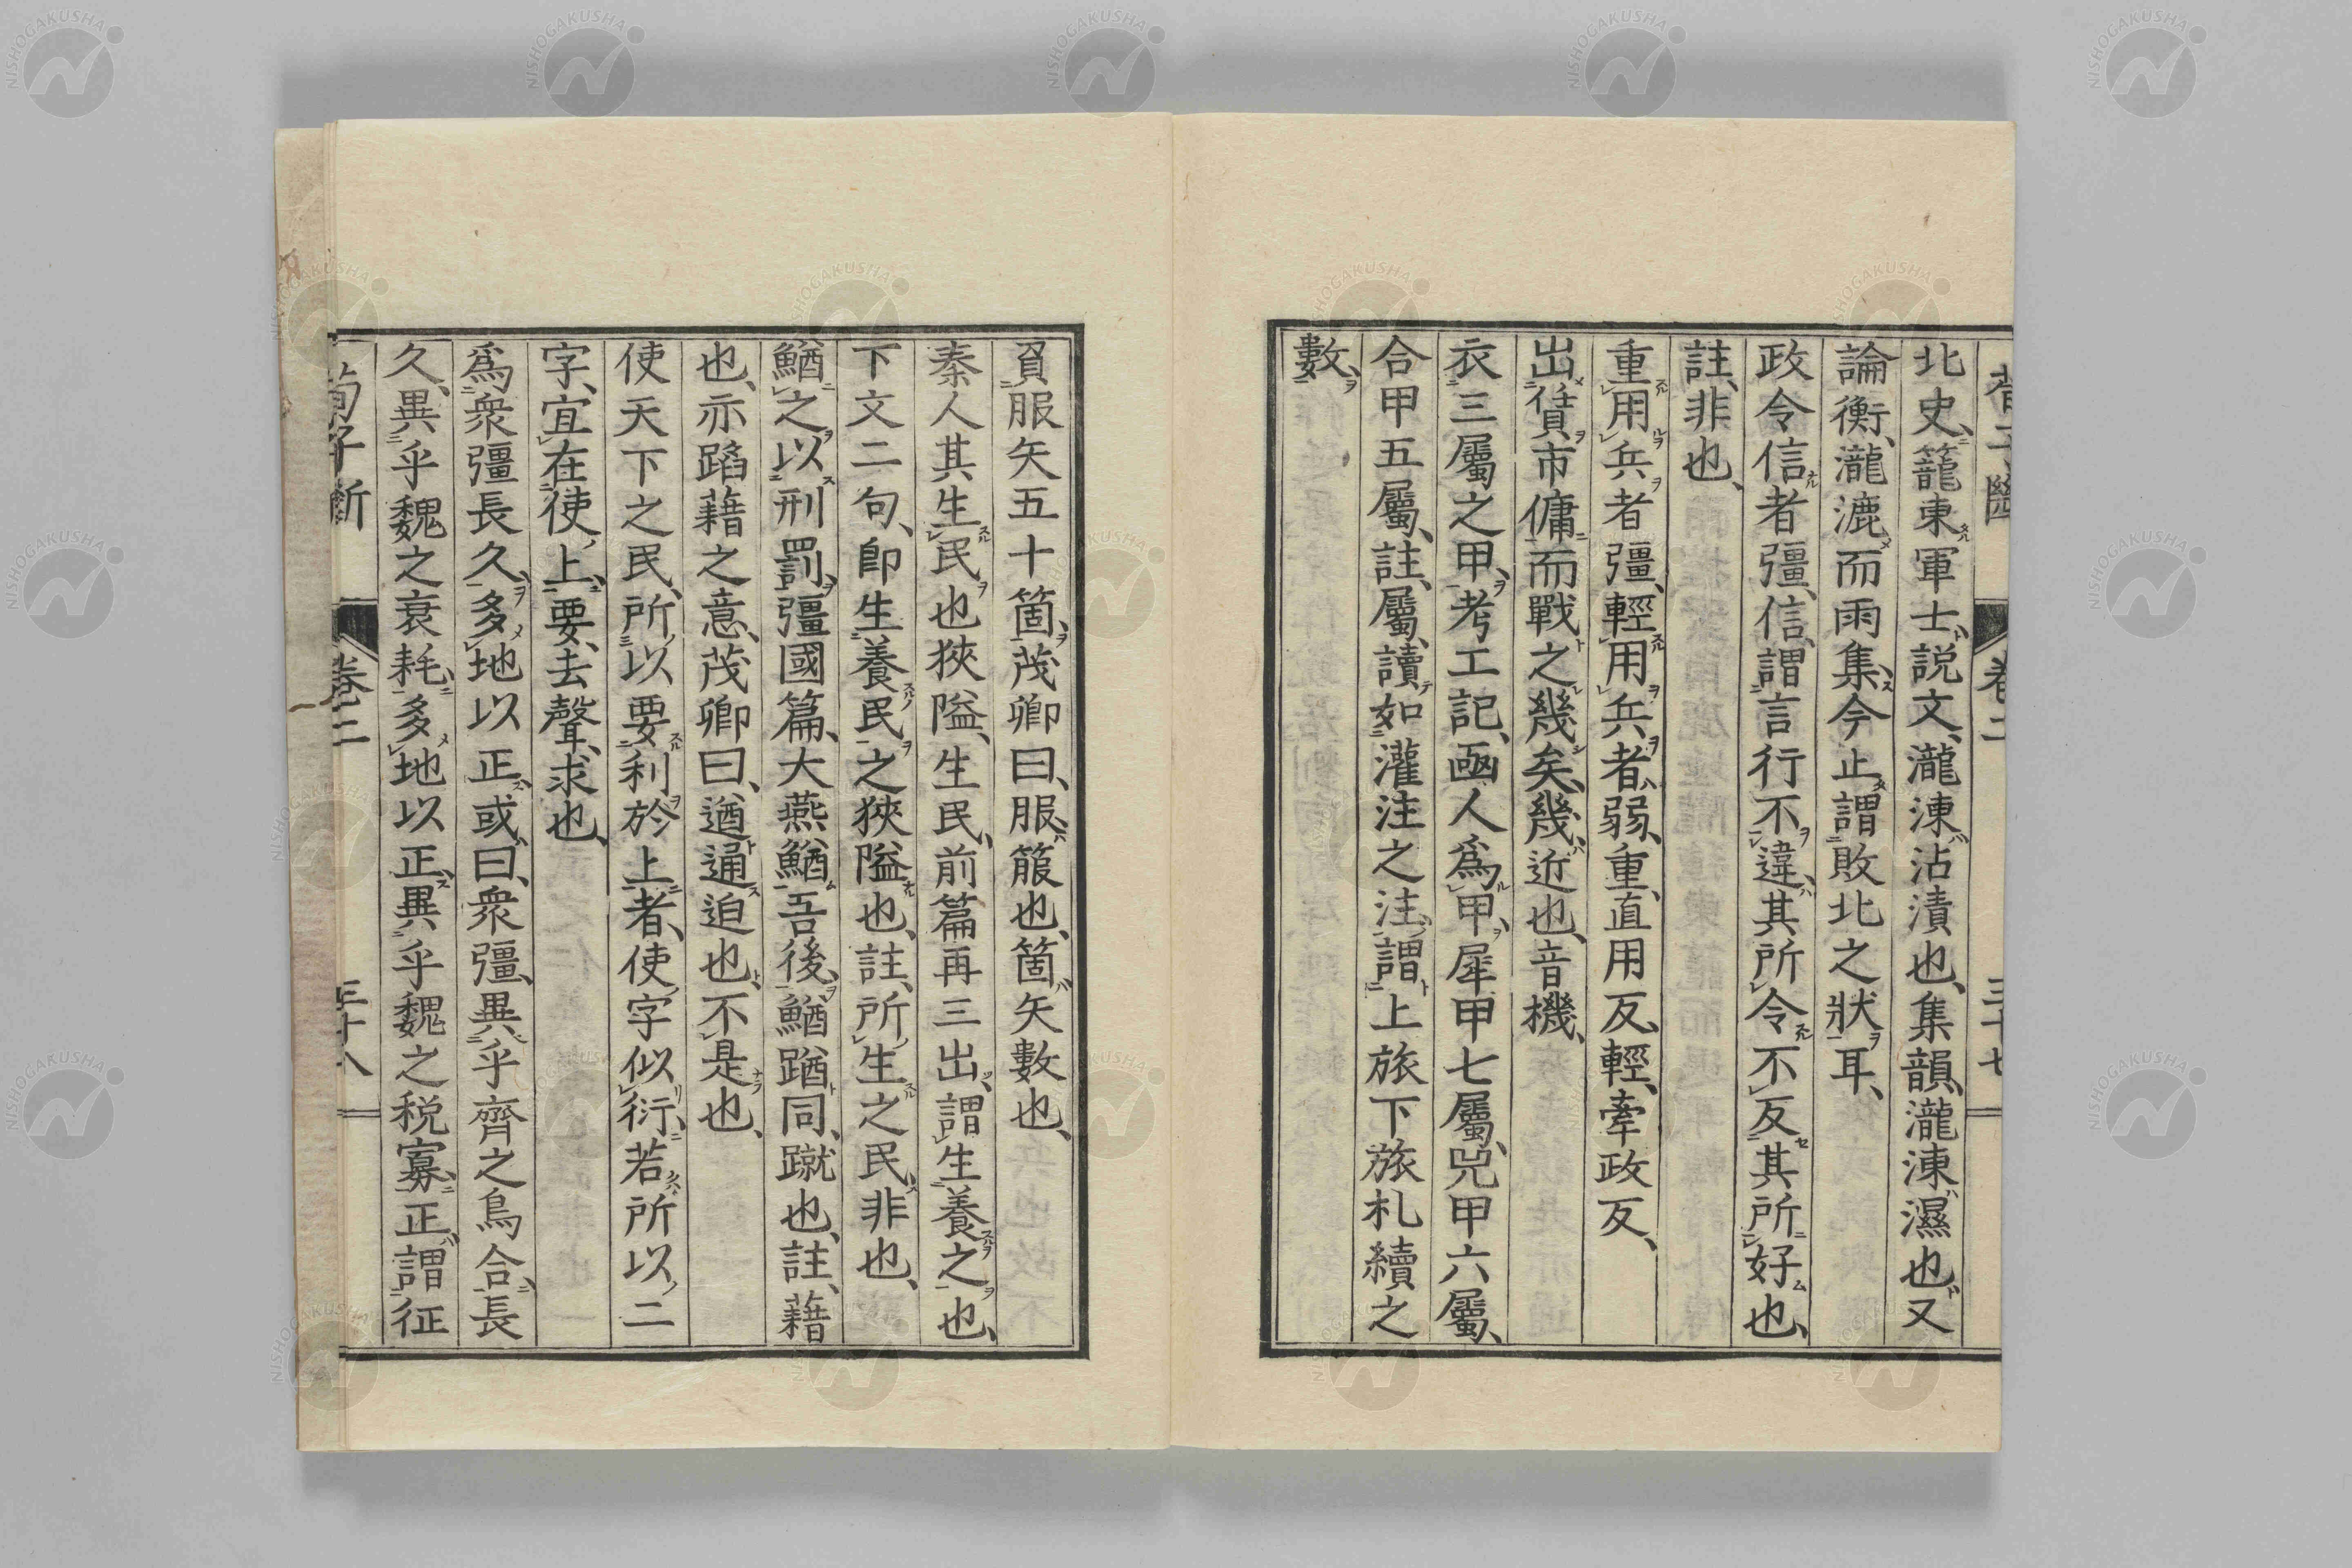 北史、籠東軍士、説文、瀧涷沾漬也、集韻、瀧涷濕也、又
論衡、瀧漉而雨集、今止謂敗北之狀耳、
政令信者彊、信、謂言行不違、其所令不反其所好也、
註、非也、
重用兵者彊、輕用兵者弱、重、直用反、輕、牽政反、
出賃市傭而戰之幾矣、幾、近也、音機、
衣三屬之甲、考工記、凾人爲甲、犀甲七屬、兕甲六屬、
合甲五屬、註、屬、讀如灌注之注、謂上旅下旅札續之
數、
負服矢五十箇、茂卿曰、服、箙也、箇、矢數也、
秦人其生民也狹隘、生民、前篇再三出、謂生養之也、
下文二句、卽生養民之狹隘也、註、所生之民、非也、
鰌之以刑罰、彊國篇、大燕鰌吾後、鰌、蹈同、蹴也、註、藉
也、亦蹈藉之意、茂卿曰、遒通、迫也、不是也、
使天下之民、所以要利於上者、使字似衍、若所以二
字、宜在使上、要、去聲、求也、
爲衆彊長久、多地以正、或曰、衆彊、異乎齊之烏合、長
久、異乎魏之衰耗、多地以正、異乎魏之税寡、正、謂征
荀子斷 卷二 三十八
卷二 三十七